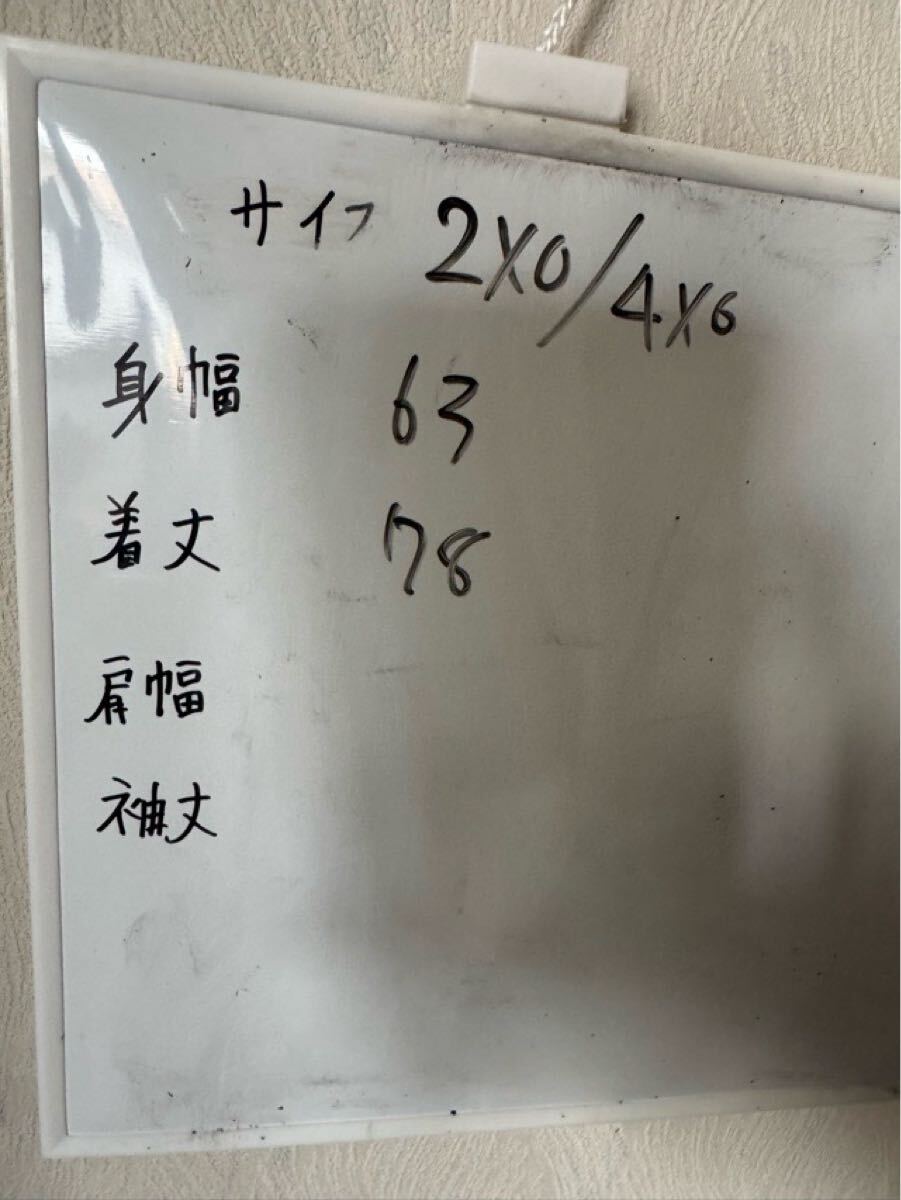 サイフ 2X0/4X6
身幅 63
着丈 78
肩幅
袖丈